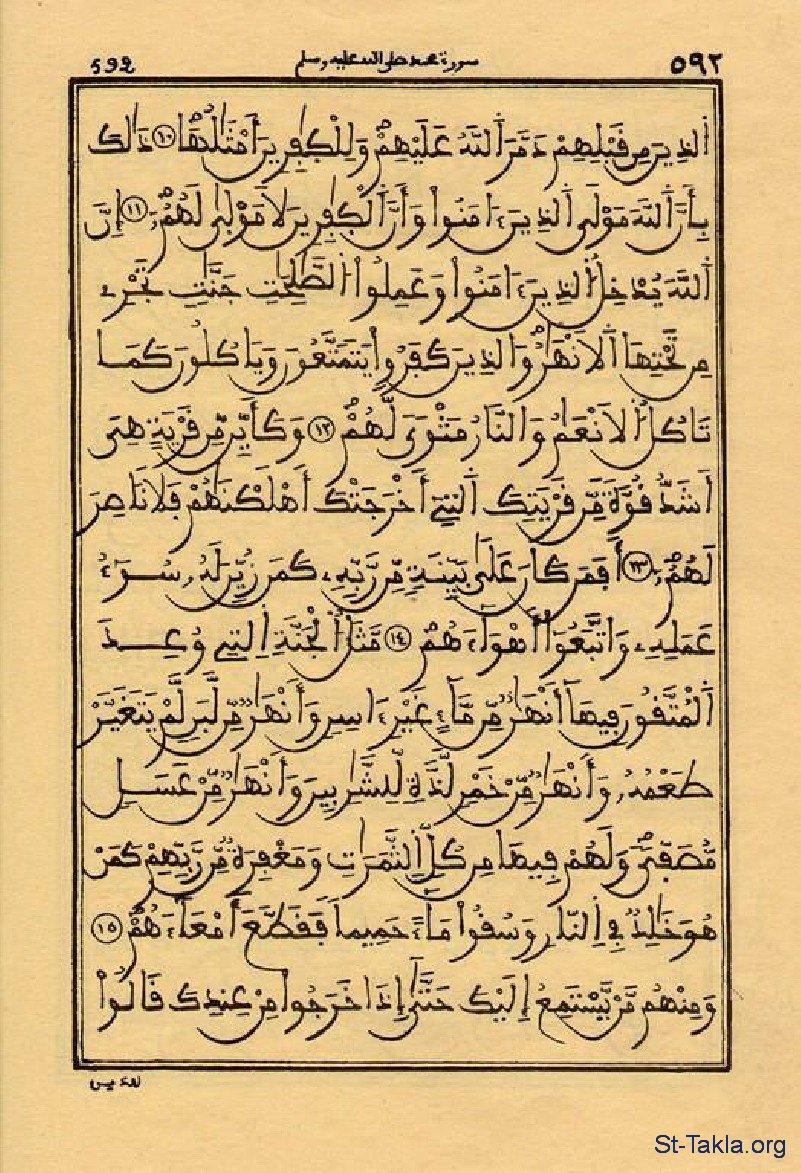 592 سورة محمد صلى الله عليه وسلم ٥٩٢
الذِينَ مِن قَبْلِهِمْ دَمَّرَ اَللَّهُ عَلَيْهِمْ وَلِلْكٰفِرِينَ أَمْثَٰلُهَا ١٠ ذَٰلِكَ
بِأَنَّ اَللَّهَ مَوْلَى اَلذِينَ ءَامَنُوا وَأَنَّ اَلْكٰفِرِينَ لَا مَوْلَىٰ لَهُمْ ١١ إِنَّ
اَللَّهَ يُدْخِلُ اُلذِينَ ءَامَنُوا وَعَمِلُوا اُلصَّٰلِحَٰتِ جَنَّٰتٍ تَجْرِے
مِن تَحْتِهَا اَلَانْهَٰرُ وَالذِينَ كَفَرُوا يَتَمَتَّعُونَ وَيَاكُلُونَ كَمَا
تَاكُلُ اُلَانْعَٰمُ وَالنَّارُ مَثْوًى لَّهُمْ ١٢ وَكَأَيِّن مِّن قَرْيَةٍ هِىَ
أَشَدُّ قُوَّةً مِّن قَرْيَتِكَ اَلتِے أَخْرَجَتْكَ أَهْلَكْنَٰهُمْ فَلَا نَاصِرَ
لَهُمْ ١٣ أَفَمَن كَانَ عَلَىٰ بَيِّنَةٍ مِّن رَّبِّهِۦ كَمَن زُيِّنَ لَهُۥ سُوٓءُ
عَمَلِهِۦ وَاتَّبَعُوا أَهْوَآءَهُمْ ١٤ مَّثَلُ اُلْجَنَّةِ اِلتِے وُعِدَ
اَلْمُتَّقُونَ فِيهَآ أَنْهَٰرٌ مِّن مَّآءٍ غَيْرِ ءَاسِنٍ وَأَنْهَٰرٌ مِّن لَّبَنٍ لَّمْ يَتَغَيَّرْ
طَعْمُهُۥ وَأَنْهَٰرٌ مِّنْ خَمْرٍ لَّذَّةٍ لِّلشَّٰرِبِينَ وَأَنْهَٰرٌ مِّنْ عَسَلٍ
مُّصَفًّى وَلَهُمْ فِيهَا مِن كُلِّ اِلثَّمَرَٰتِ وَمَغْفِرَةٌ مِّن رَّبِّهِمْ كَمَنْ
هُوَ خَٰلِدٌ فِے اِلنَّارِ وَسُقُوا مَآءً حَمِيماً فَقَطَّعَ أَمْعَآءَهُمْ ١٥
وَمِنْهُم مَّنْ يَّسْتَمِعُ إِلَيْكَ حَتَّىٰٓ إِذَا خَرَجُوا مِنْ عِندِكَ قَالُوا
St-Takla.org